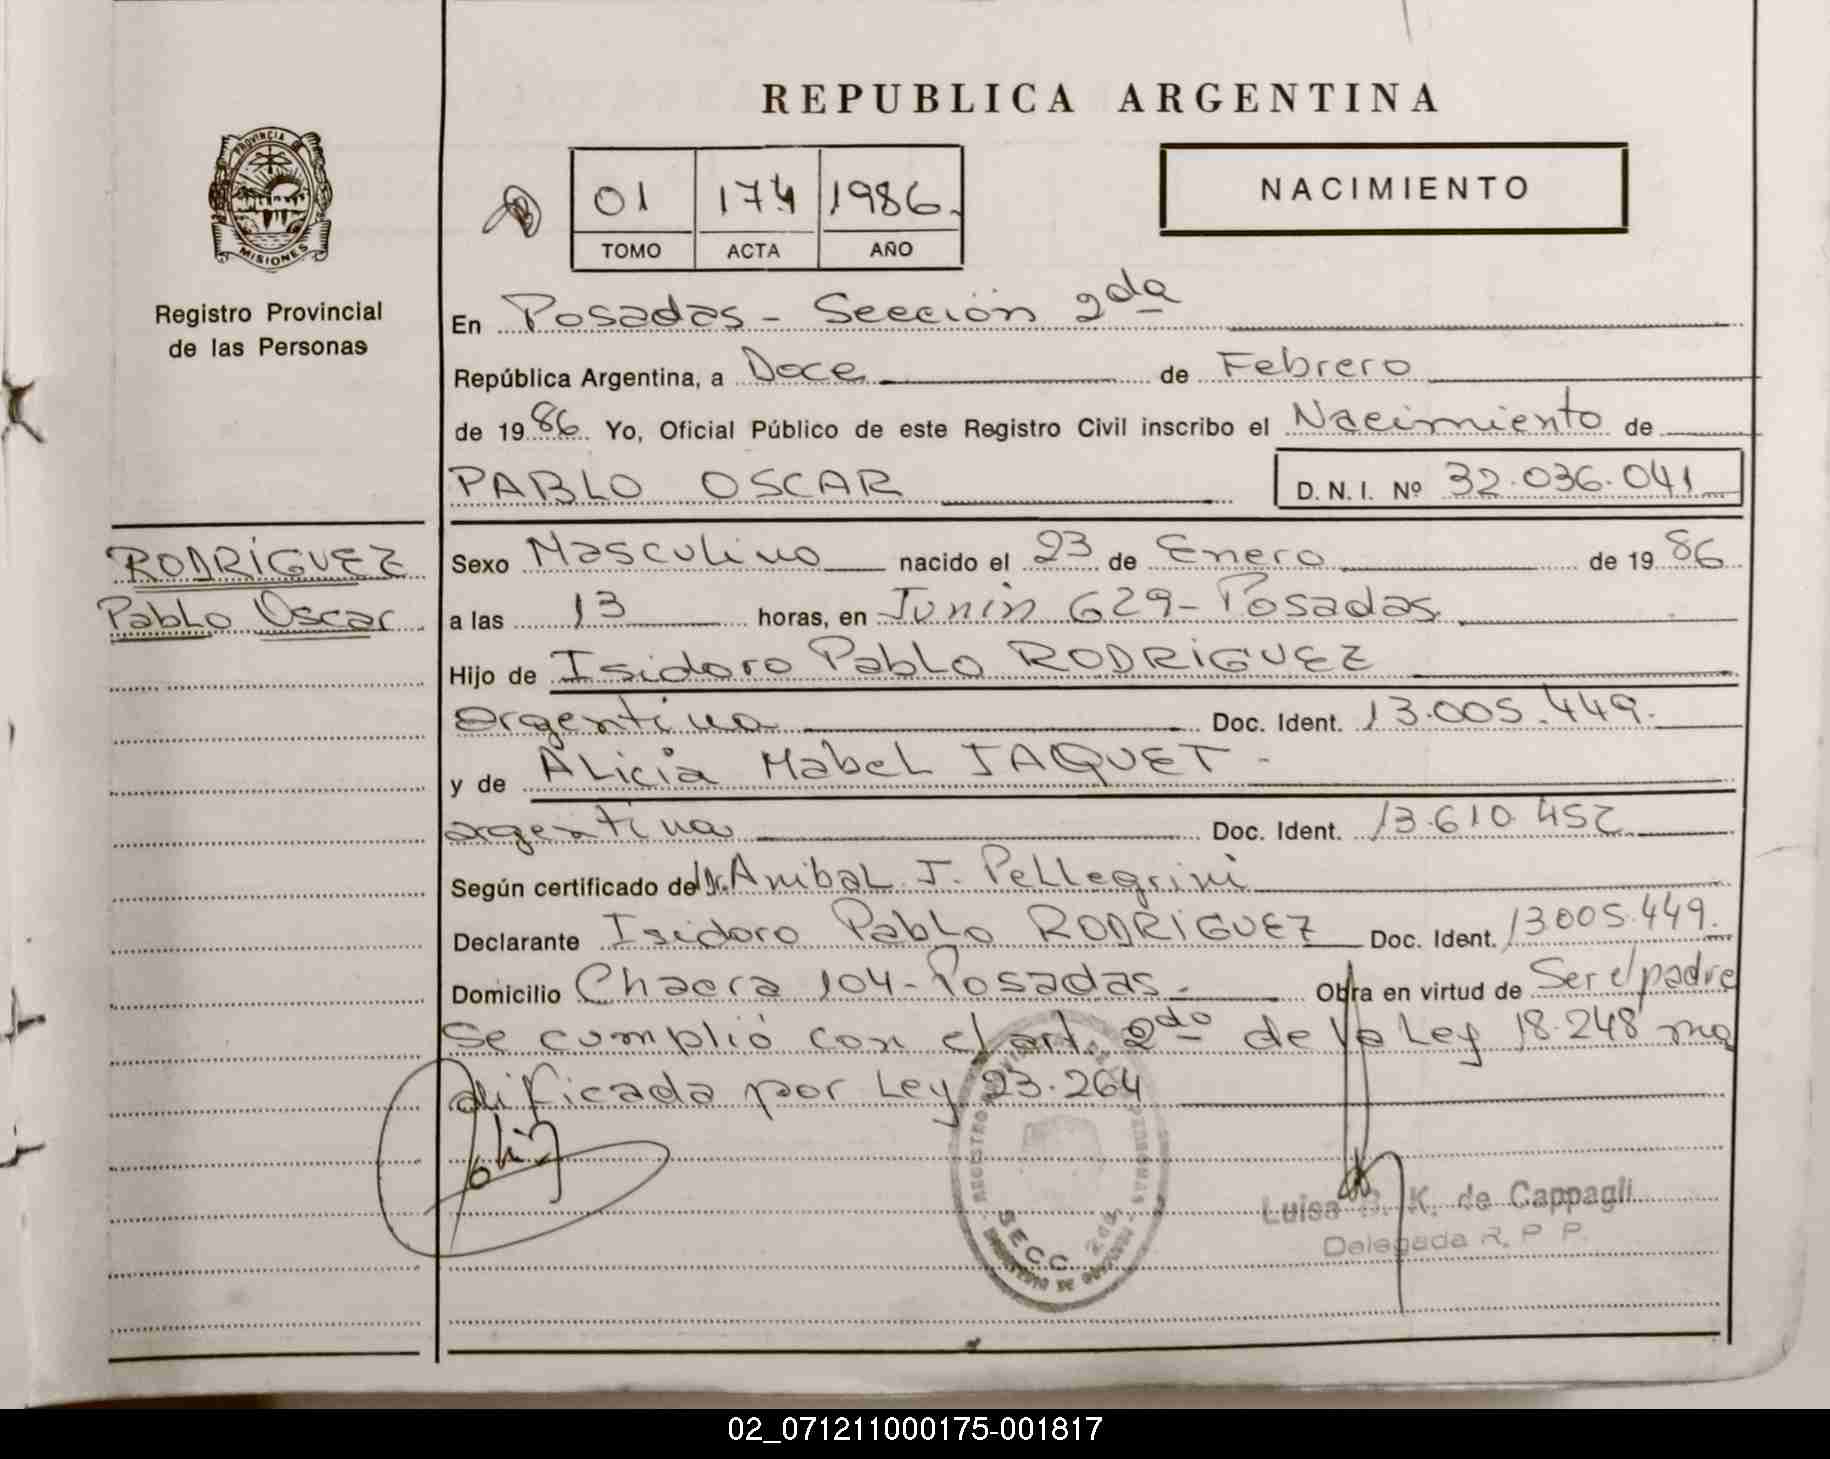 REPUBLICA ARGENTINA
PROVINCIA DE
MISIONES
Registro Provincial
de las Personas
01 174 1986.
TOMO ACTA AÑO
NACIMIENTO
En Posadas - Sección 2da
República Argentina, a Doce de Febrero
de 1986. Yo, Oficial Público de este Registro Civil inscribo el Nacimiento de
PABLO OSCAR D. N. I. Nº 32.036.041
RODRÍGUEZ
Pablo Oscar
Sexo Masculino nacido el 23 de Enero de 1986
a las 13 horas, en Junín 629 - Posadas
Hijo de Isidoro Pablo RODRÍGUEZ
argentina Doc. Ident. 13.005.449.
y de Alicia Mabel JAQUET -
argentina Doc. Ident. 13.610.452
Según certificado del Dr. Anibal J. Pellegrini
Declarante Isidoro Pablo RODRÍGUEZ Doc. Ident. 13.005.449.
Domicilio Chacra 104 - Posadas. Obra en virtud de Ser el padre
Se cumplió con el art. 2do de la Ley 18.248 mo
dificada por Ley 23.264
SECC. 2da
Luisa B. K. de Cappagli
Delegada R. P. P.
02_071211000175-001817